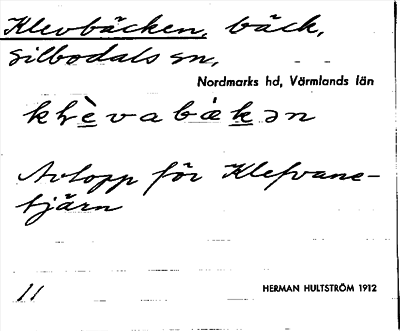 Klevbäcken, bäck,
Silbodals sn,
Nordmarks hd, Värmlands län
Avlopp för Klefvane-
tjärn
11
HERMAN HULTSTRÖM 1912